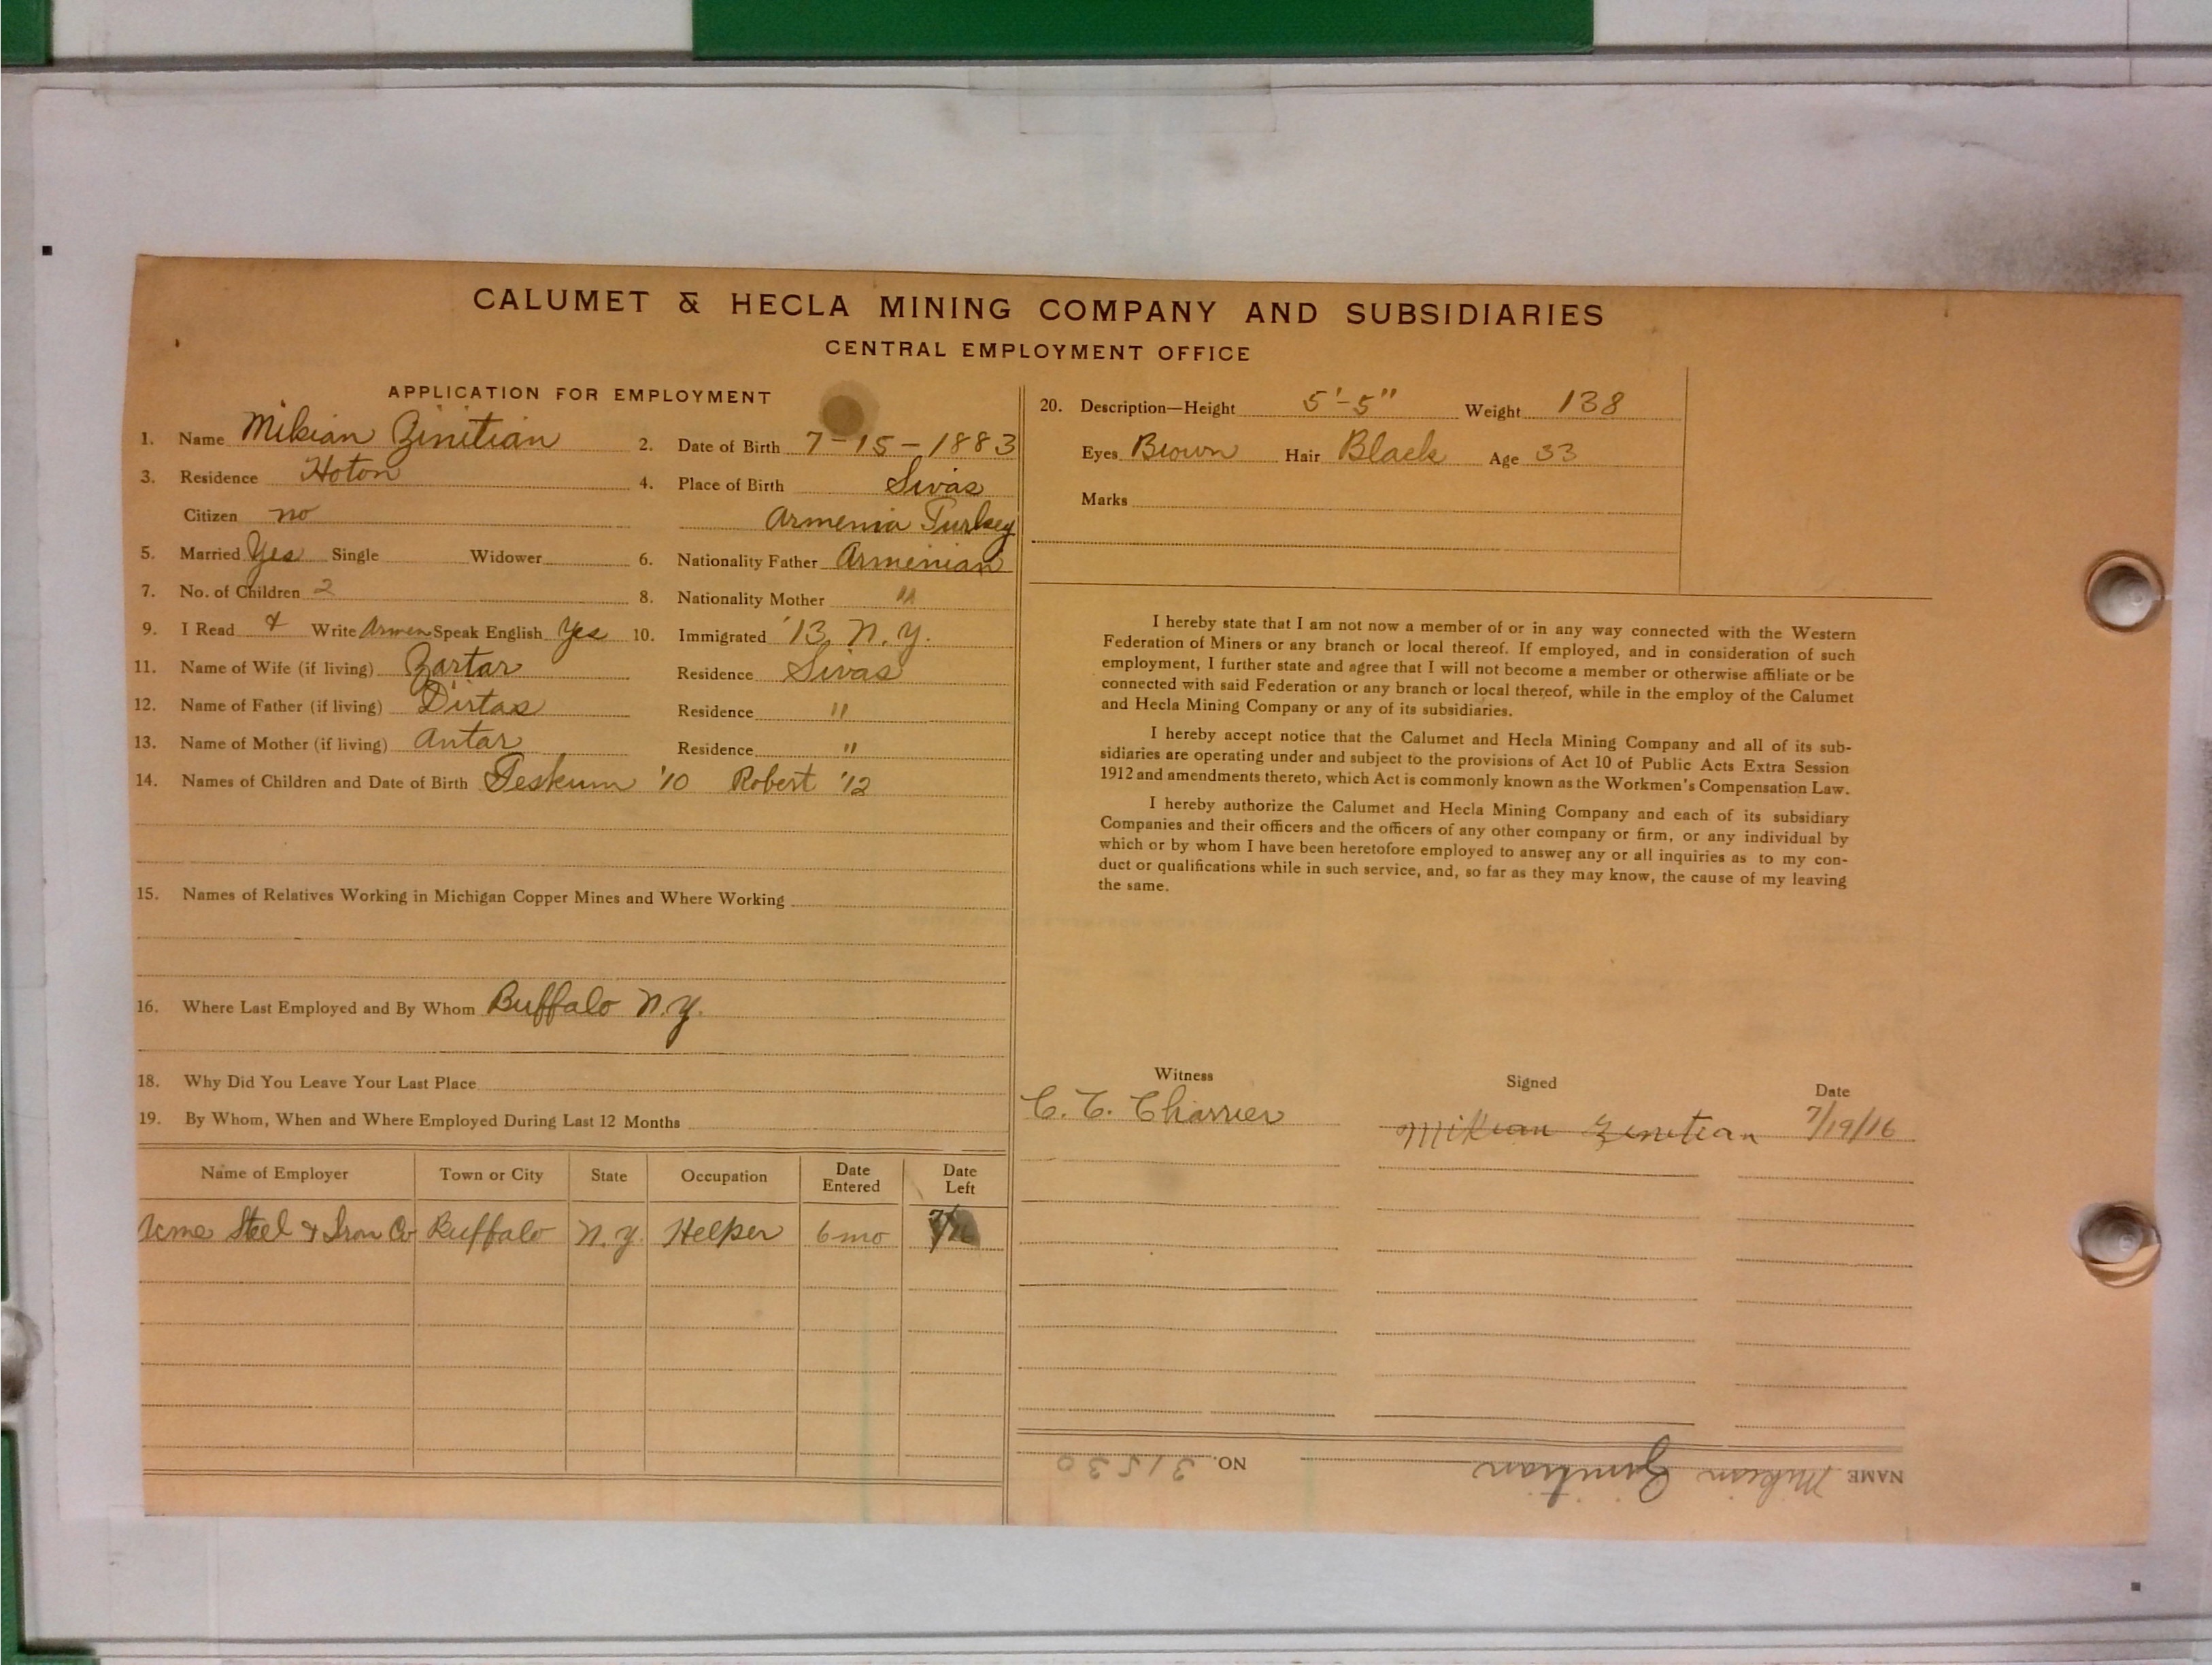 CALUMET & HECLA MINING COMPANY AND SUBSIDIARIES
CENTRAL EMPLOYMENT OFFICE
APPLICATION FOR EMPLOYMENT
1. Name Mikian Zinitian 2. Date of Birth 7-15-1883
3. Residence Hoton 4. Place of Birth Sivas
Citizen no Armenia Turkey
5. Married Yes Single Widower 6. Nationality Father Armenian
7. No. of Children 2 8. Nationality Mother "
9. I Read & Write Armen Speak English Yes 10. Immigrated '13, N.Y.
11. Name of Wife (if living) Zartar Residence Sivas
12. Name of Father (if living) Dirtas Residence "
13. Name of Mother (if living) Antar Residence "
14. Names of Children and Date of Birth Teskum '10 Robert '12
15. Names of Relatives Working in Michigan Copper Mines and Where Working
16. Where Last Employed and By Whom Buffalo N.Y.
18. Why Did You Leave Your Last Place
19. By Whom, When and Where Employed During Last 12 Months
Name of Employer Town or City State Occupation Date Entered Date Left
Acme Steel & Iron Co Buffalo N.Y. Helper 6 mo
20. Description—Height 5'-5" Weight 138
Eyes Brown Hair Black Age 33
Marks
I hereby state that I am not now a member of or in any way connected with the Western
Federation of Miners or any branch or local thereof. If employed, and in consideration of such
employment, I further state and agree that I will not become a member or otherwise affiliate or be
connected with said Federation or any branch or local thereof, while in the employ of the Calumet
and Hecla Mining Company or any of its subsidiaries.
I hereby accept notice that the Calumet and Hecla Mining Company and all of its sub-
sidiaries are operating under and subject to the provisions of Act 10 of Public Acts Extra Session
1912 and amendments thereto, which Act is commonly known as the Workmen's Compensation Law.
I hereby authorize the Calumet and Hecla Mining Company and each of its subsidiary
Companies and their officers and the officers of any other company or firm, or any individual by
which or by whom I have been heretofore employed to answer any or all inquiries as to my con-
duct or qualifications while in such service, and, so far as they may know, the cause of my leaving
the same.
Witness Signed Date
C. T. Charrier Mikian Zenitian 7/19/16
NAME Mikian Zinitian NO. 31530